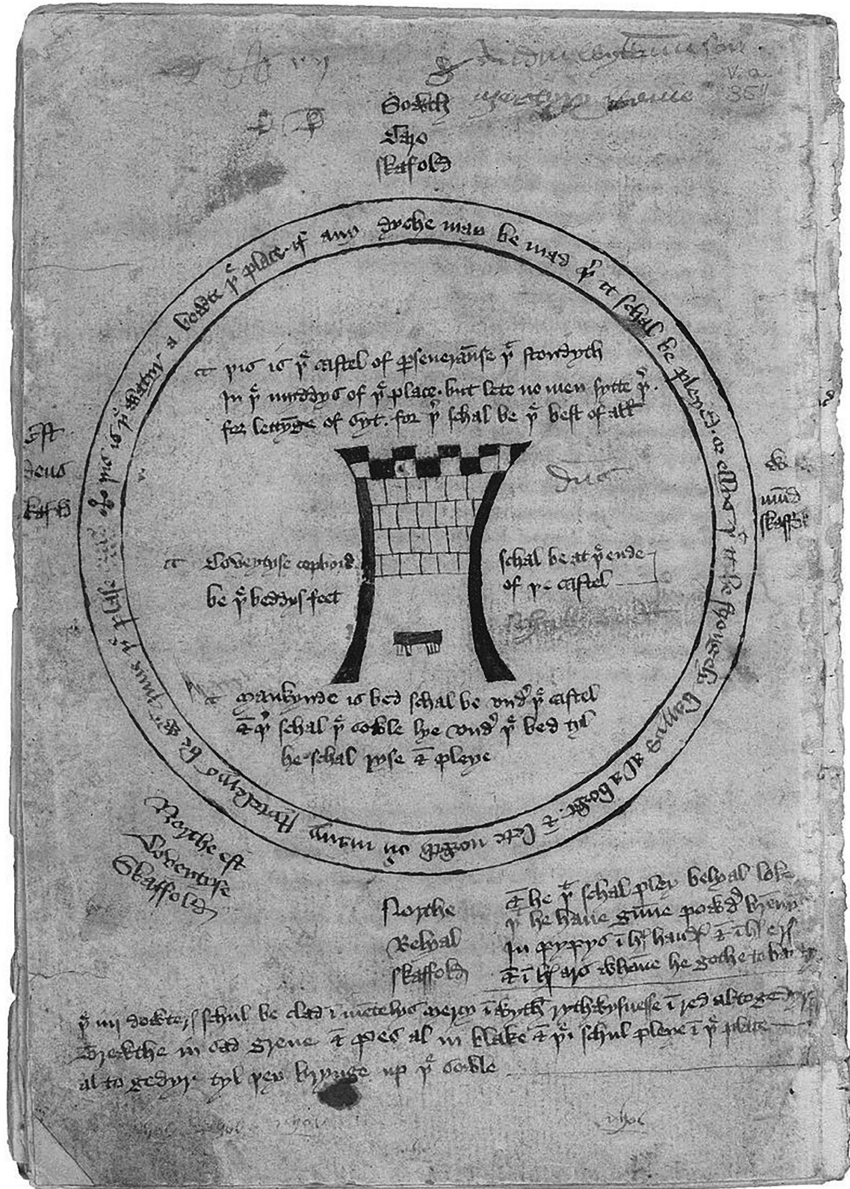 Sowth
Caro
skafold
þis is þe watyr a bowte þe place. if any dyche may be mad þer it schal be pleyed. or ellys þat it be strongely barryd al a bowt. & lete nowth ouyr many stytelerys be wyth inne þe plase
þis is þe castel of perseueraunse þat stondyth
In þe myddys of þe place. but lete no men sytte þer.
for lettynge of syt. for þer schal be þe best of all
Est
deus
skafold
W
mund
skaffold
Coveytyse copbord
be þe beddys feet
schal be at þe ende
of þe castel
Mankynde is bed schal be vndyr þe castel
& þer schal þe sowle lye vndyr þe bed tyl
he schal ryse & pleye
Northe est
Coveytyse
Skaffold
Northe
Belyal
skaffold
& he þat schal pley belyal loke
þat he haue gunne powdyr brennynge
In pypys in his handis & in his eris
& in his ars whanne he gothe to batayl
þe iiij dowterys schul be clad in mentelys mercy in wyth rythwysnesse in red al togedyr
Trewthe in sad grene & pes al in blake & þei schul pleye in þe place
al to gedyr tyl þey brynge up þe sowle